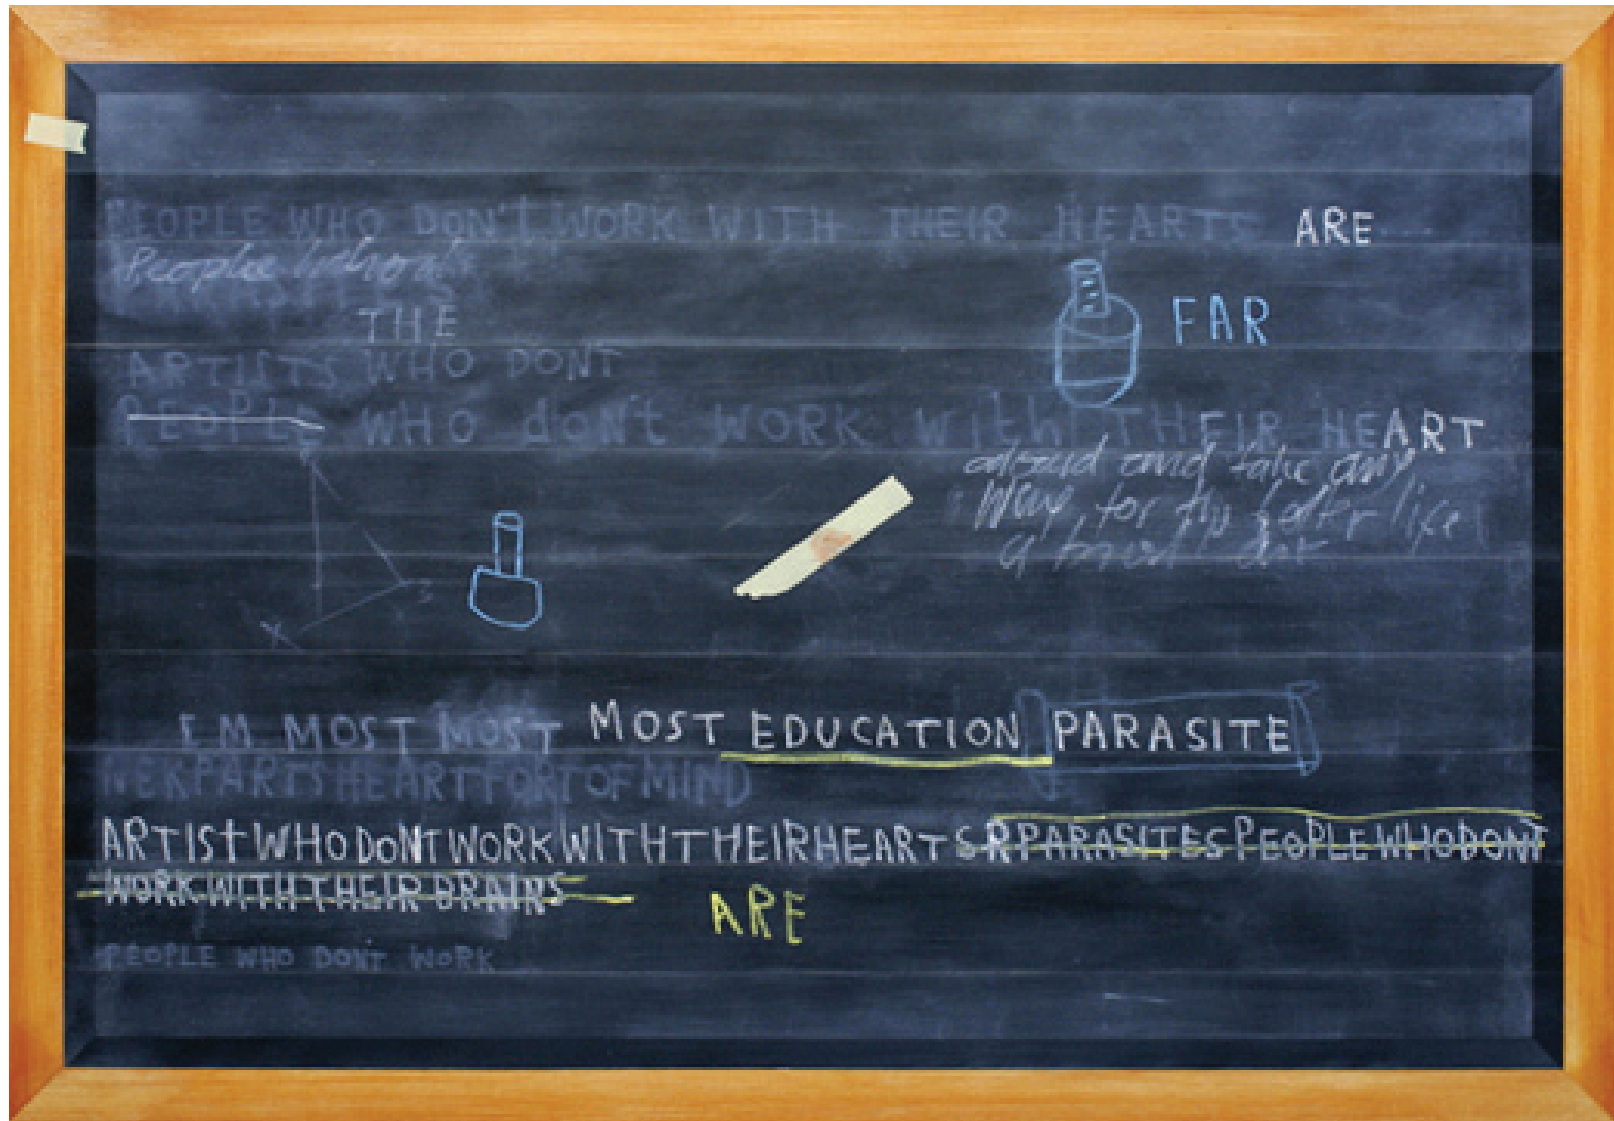 PEOPLE WHO DON't WORK WITH THEIR HEARTS ARE
People
THE
FAR
ARTISTS WHO DONT
PEOPLE WHO don't WORK With THEIR HEART
and take any
way for the better life
MOST MOST MOST EDUCATION PARASITE
HEART OF MIND
ARTIST WHO DONT WORK WITH THEIR HEARTS R PARASITES PEOPLE WHO DONT
WORK WITH THEIR BRAINS
ARE
PEOPLE WHO DONT WORK